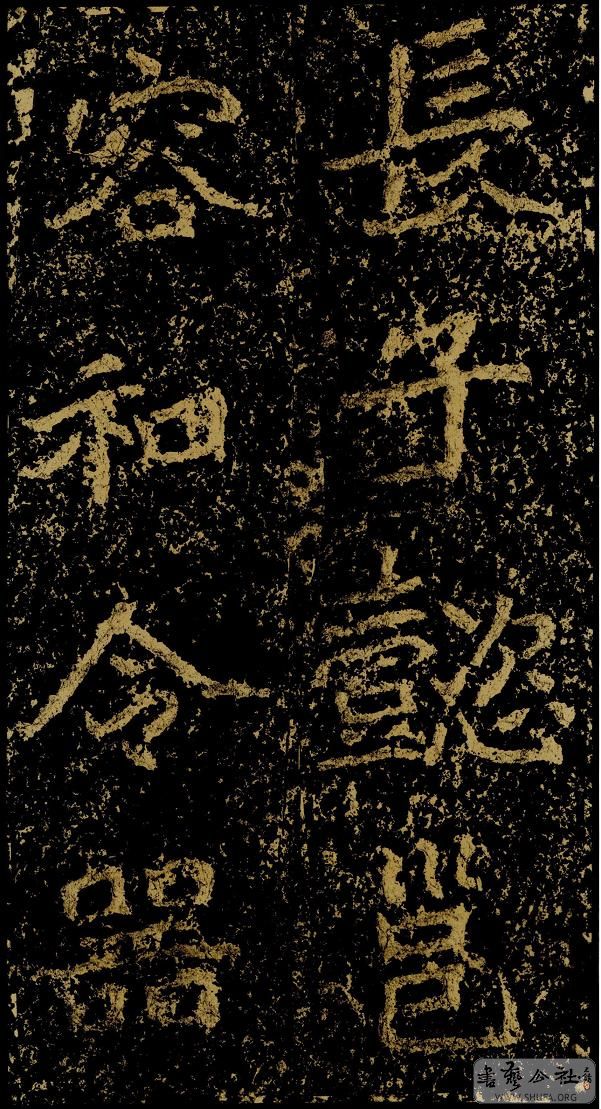 長子懿邕
容和令器
書藝公社
WWW.SHUFA.ORG